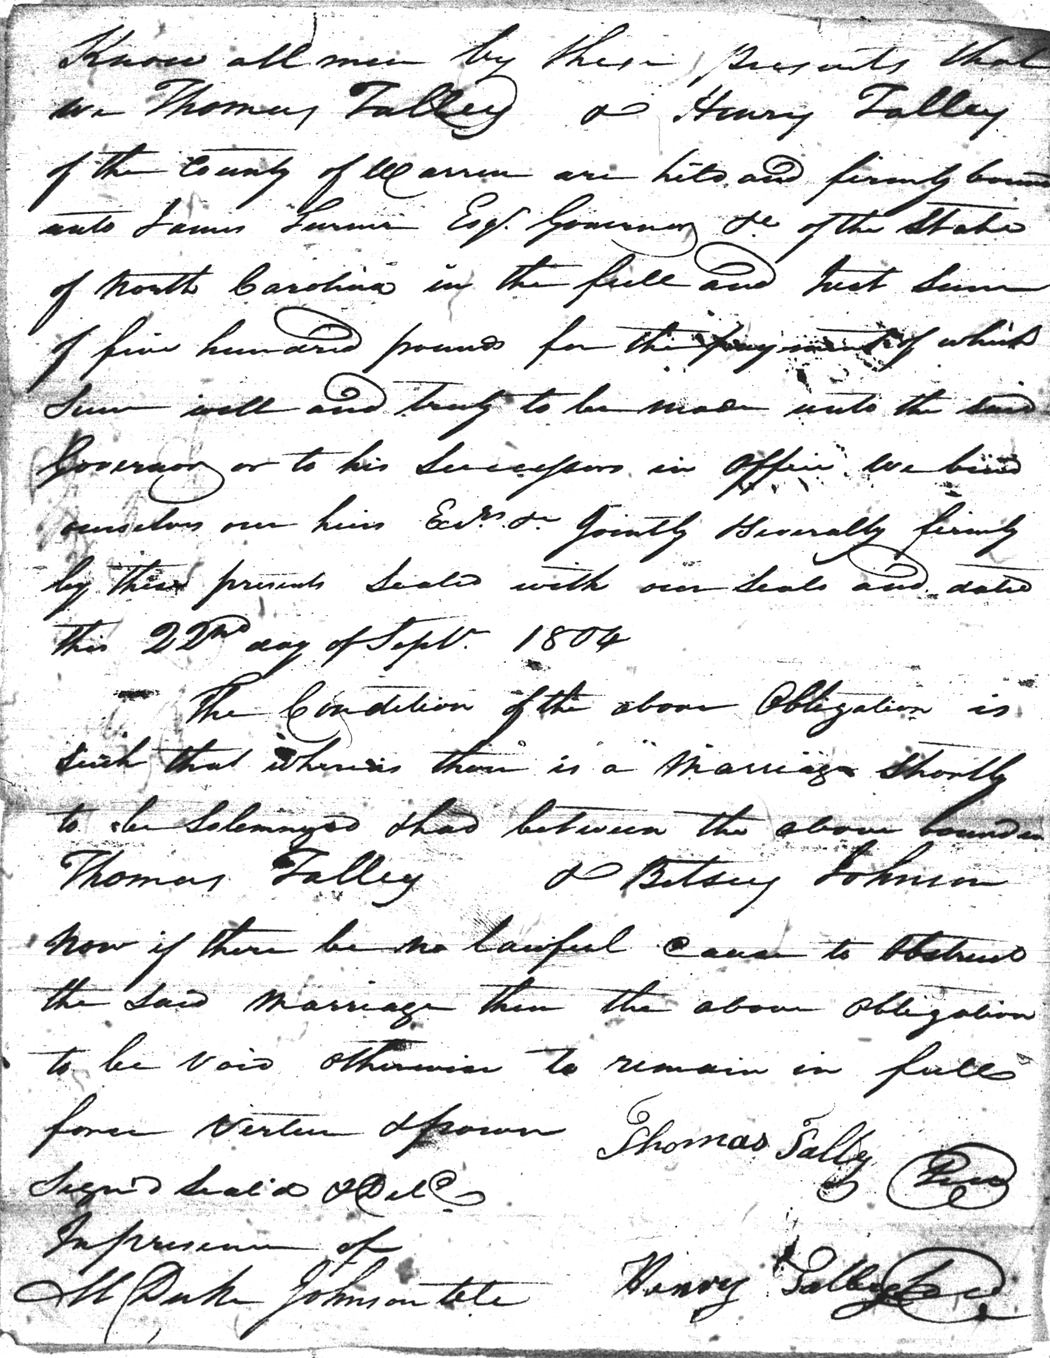 Know all men by these presents that
we Thomas Talley & Henry Talley
of the County of Warren are held and firmly bound
unto James Turner Esqr. Governor &c of the State
of North Carolina in the full and Just Sum
of five hundred pounds for the payment of which
Sum well and truly to be made unto the said
Governor or to his Successors in office we bind
ourselves our heirs Exrs &c Jointly & Severally firmly
by these presents Sealed with our Seals and dated
this 22nd day of Septr. 1804
The Condition of the above Obligation is
Such that whereas there is a Marriage Shortly
to be Solemnized & had between the above bounden
Thomas Talley & Betsey Johnson
Now if there be no lawful Cause to obstruct
the Said Marriage then the above obligation
to be void otherwise to remain in full
force Virtue & power
Thomas Talley Seal
Signd Seal'd & Deld
In presence of
M Duke Johnson
Henry Talley Seal